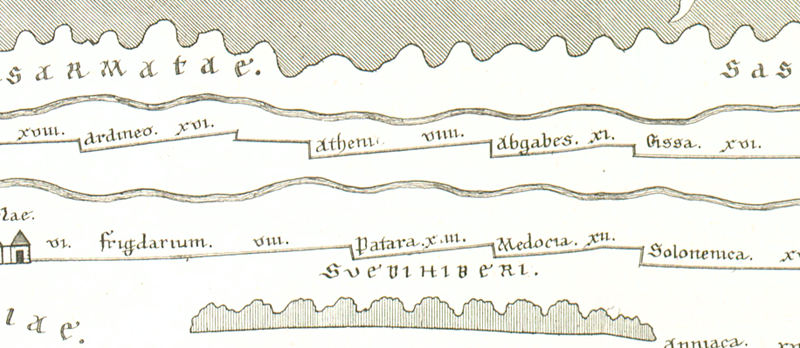 SARMATAE. SAS
xviii. Ardineo. xvi. Atheni viiii. Abgabes. xi. Cissa. xvi.
lae.
vi. frigdarium. viii. Patara. x.iii. Medocia. xii. Solonenica. xv
SVEDIHIBERI.
lae.
Anniaca.